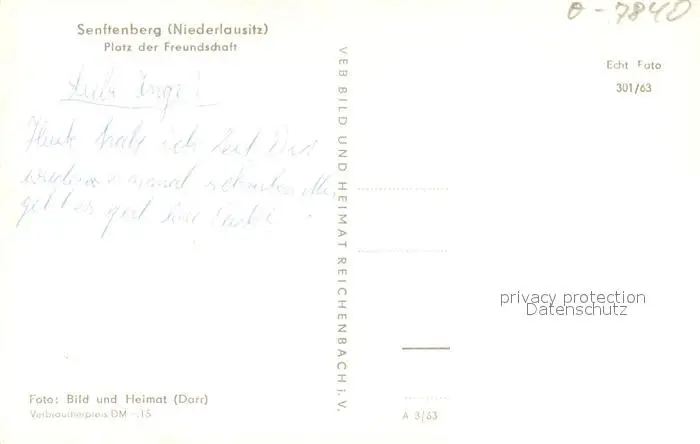 Senftenberg (Niederlausitz)
Platz der Freundschaft
0-7840
Echt Foto
301/63
Liebe Inge!
Heute habe ich Zeit
schreiben
geht es gut
VEB BILD UND HEIMAT REICHENBACH i. V.
privacy protection
Datenschutz
Foto: Bild und Heimat (Darr)
Verbraucherpreis DM -.15
A 3/63